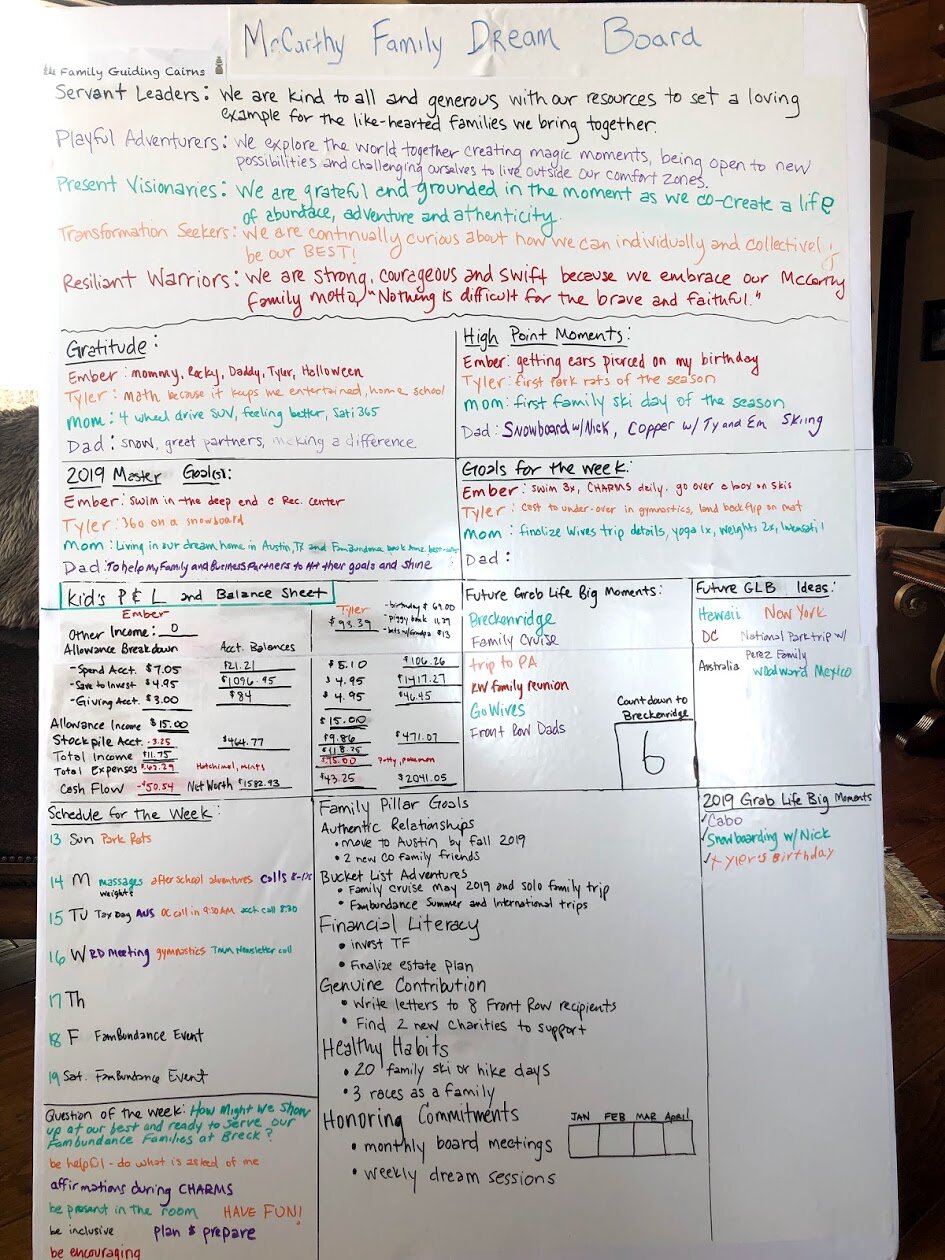 McCarthy Family Dream Board
Family Guiding Cairns
Servant Leaders: We are kind to all and generous with our resources to set a loving
example for the like-hearted families we bring together.
Playful Adventurers: We explore the world together creating magic moments, being open to new
possibilities and challenging ourselves to live outside our comfort zones.
Present Visionaries: We are grateful and grounded in the moment as we co-create a life
of abundace, adventure and athenticity.
Transformation Seekers: We are continually curious about how we can individually and collectively
be our BEST!
Resiliant Warriors: We are strong, courageous and swift because we embrace our McCarthy
family motto, "Nothing is difficult for the brave and faithful."
Gratitude:
Ember: mommy, Rocky, Daddy, Tyler, Halloween
Tyler: math because it keeps me entertained, home school
Mom: 4 wheel drive SUV, feeling better, Sati 365
Dad: snow, great partners, making a difference
High Point Moments:
Ember: getting ears pierced on my birthday
Tyler: first park rats of the season
Mom: first family ski day of the season
Dad: Snowboard w/Nick, Copper w/ Ty and Em Skiing
2019 Master Goal(s):
Ember: Swim in the deep end @ Rec. center
Tyler: 360 on a snowboard
Mom: Living in our dream home in Austin, TX and Fambundance book
Dad: To help my Family and Business Partners to hit their goals and shine
Goals for the week:
Ember: swim 3x, CHARMS daily, go over a box on skis
Tyler: cast to under-over in gymnastics, land backflip on mat
Mom: finalize Wives trip details, yoga 1x, weights 2x, Intensati 1
Dad:
Kid's P & L and Balance Sheet
Ember
Other Income: 0
Allowance Breakdown Acct. Balances
-Spend Acct. $7.05 $21.21
-Save to Invest $4.95 $1096.95
-Giving Acct. $3.00 $84
Allowance Income $15.00
Stockpile Acct. -3.25 $464.77
Total Income $11.75
Total Expenses $62.29 Hatchimal, mints
Cash Flow -$50.54 Net Worth $1582.93
Tyler
$93.39
-birthday $69.00
-piggy bank 11.39
-bets w/Grandpa $13
$5.10 $106.26
$4.95 $1417.27
$4.95 $46.45
$15.00
$9.86 $471.07
$118.25
$75.00 Potty, pokemon
$43.25 $2041.05
Future Grab Life Big Moments:
Breckenridge
Family Cruise
trip to PA
KW family reunion
GoWives
Front Row Dads
Countdown to
Breckenridge
6
Future GLB Ideas:
Hawaii New York
DC National Park trip w/
Perez Family
Australia Woodward Mexico
Schedule for the Week:
13 Sun Park Rats
14 M massages after school adventures calls 8-1
weights
15 TU Tax Day AUS OC call in 9:30AM acct. call 8:30
16 W RD Meeting gymnastics Newsletter call
17 Th
18 F FamBundance Event
19 Sat. FamBundance Event
Question of the week: How Might We Show
up at our best and ready to serve our
Fambundance Families at Breck?
be helpful - do what is asked of me
affirmations during CHARMS
be present in the room HAVE FUN!
be inclusive plan & prepare
be encouraging
Family Pillar Goals
Authentic Relationships
• move to Austin by fall 2019
• 2 new CO family friends
Bucket List Adventures
• Family cruise may 2019 and solo family trip
• Fambundance Summer and International trips
Financial Literacy
• invest TF
• Finalize estate plan
Genuine Contribution
• Write letters to 8 Front Row recipients
• Find 2 new Charities to support
Healthy Habits
• 20 family ski or hike days
• 3 races as a family
Honoring Commitments
• monthly board meetings
• weekly dream sessions
JAN FEB MAR April
2019 Grab Life Big Moments
✓Cabo
✓Snowboarding w/Nick
✓Tyler's Birthday